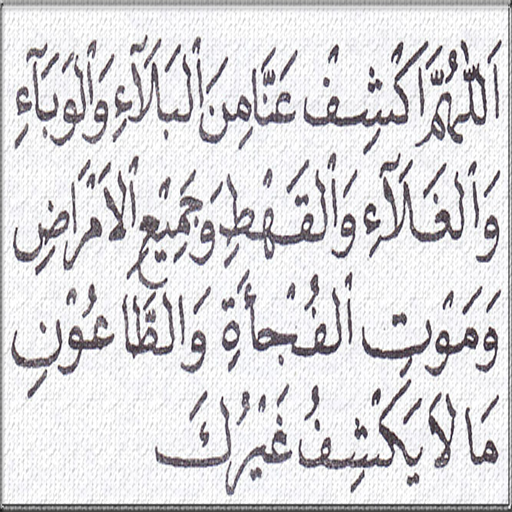 اَللّٰهُمَّ اكْشِفْ عَنَّا مِنَ اْلبَلَآءِ وَاْلوَبَآءِ
وَاْلغَلَآءِ وَاْلقَهْطِ وَجَمِيْعِ اْلاَمْرَاضِ
وَمَوْتِ اْلفُجْأَةِ وَالطَّاعُوْنِ
مَا لاَ يَكْشِفُ غَيْرُكَ